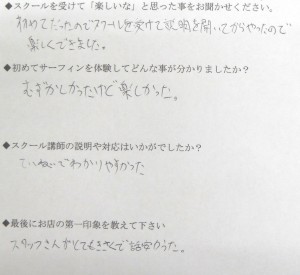 ◆スクールを受けて「楽しいな」と思った事をお聞かせください。
初めてだったのでスクールを受けて説明を聞いてからやったので
楽しくできました。
◆初めてサーフィンを体験してどんな事が分かりましたか？
むずかしかったけど楽しかった。
◆スクール講師の説明や対応はいかがでしたか？
ていねいでわかりやすかった
◆最後にお店の第一印象を教えて下さい
スタッフさんがとてもきさくで話易かった。